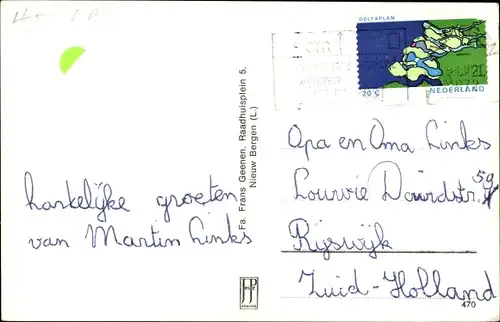 DELTAPLAN
20 C
NEDERLAND
hartelijke groeten
van Martin Links
Fa. Frans Geenen, Raadhuisplein 5,
Nieuw Bergen (L.)
Opa en Oma Links
59
Rijswijk
Zuid-Holland
470